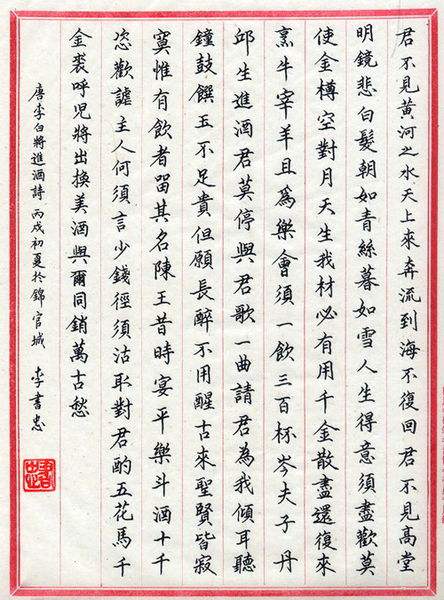 君不見黃河之水天上來奔流到海不復回君不見高堂
明鏡悲白髮朝如青絲暮如雪人生得意須盡歡莫
使金樽空對月天生我材必有用千金散盡還復來
烹牛宰羊且爲樂會須一飲三百杯岑夫子丹
邱生進酒君莫停與君歌一曲請君為我傾耳聽
鐘鼓饌玉不足貴但願長醉不用醒古來聖賢皆寂
寞惟有飲者留其名陳王昔時宴平樂斗酒十千
恣歡謔主人何須言少錢徑須沽取對君酌五花馬千
金裘呼児將出換美酒與爾同銷萬古愁
唐李白將進酒詩 丙戌初夏於錦官城 李書忠